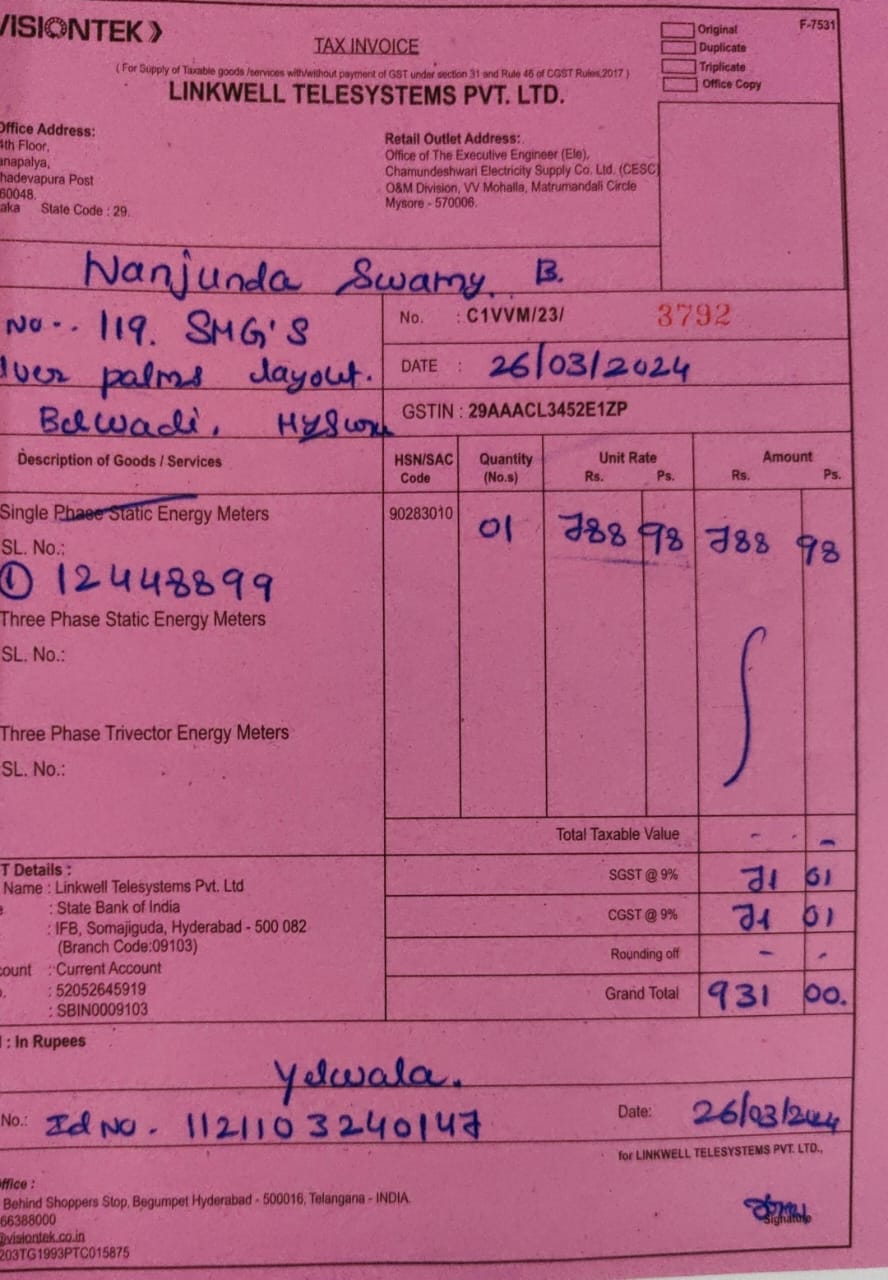 VISIONTEK
F-7531
TAX INVOICE
Original
Duplicate
Triplicate
Office Copy
( For Supply of Taxable goods /services with/without payment of GST under section 31 and Rule 46 of CGST Rules,2017 )
LINKWELL TELESYSTEMS PVT. LTD.
Office Address:
4th Floor,
anapalya,
hadevapura Post
60048.
aka State Code : 29.
Retail Outlet Address:
Office of The Executive Engineer (Ele),
Chamundeshwari Electricity Supply Co. Ltd. (CESC)
O&M Division, VV Mohalla, Matrumandali Circle
Mysore - 570006.
Nanjunda Swamy. B.
No-. 119. SMG'S
lver palms layout.
Belwadi, Mysore
No. : C1VVM/23/ 3792
DATE : 26/03/2024
GSTIN : 29AAACL3452E1ZP
Description of Goods / Services HSN/SAC Code Quantity (No.s) Unit Rate Rs. Ps. Amount Rs. Ps.
Single Phase Static Energy Meters 90283010 01 788 98 788 98
SL. No.:
① 12448899
Three Phase Static Energy Meters
SL. No.:
Three Phase Trivector Energy Meters
SL. No.:
Total Taxable Value - -
SGST @ 9% 71 01
CGST @ 9% 71 01
Rounding off - -
Grand Total 931 00.
T Details :
Name : Linkwell Telesystems Pvt. Ltd
: State Bank of India
: IFB, Somajiguda, Hyderabad - 500 082
(Branch Code:09103)
count : Current Account
: 52052645919
: SBIN0009103
: In Rupees
Yelwala.
No.: Id No. 1121103240147
Date: 26/03/2024
for LINKWELL TELESYSTEMS PVT. LTD.,
Signature
ffice :
Behind Shoppers Stop, Begumpet Hyderabad - 500016, Telangana - INDIA.
66388000
@visiontek.co.in
203TG1993PTC015875